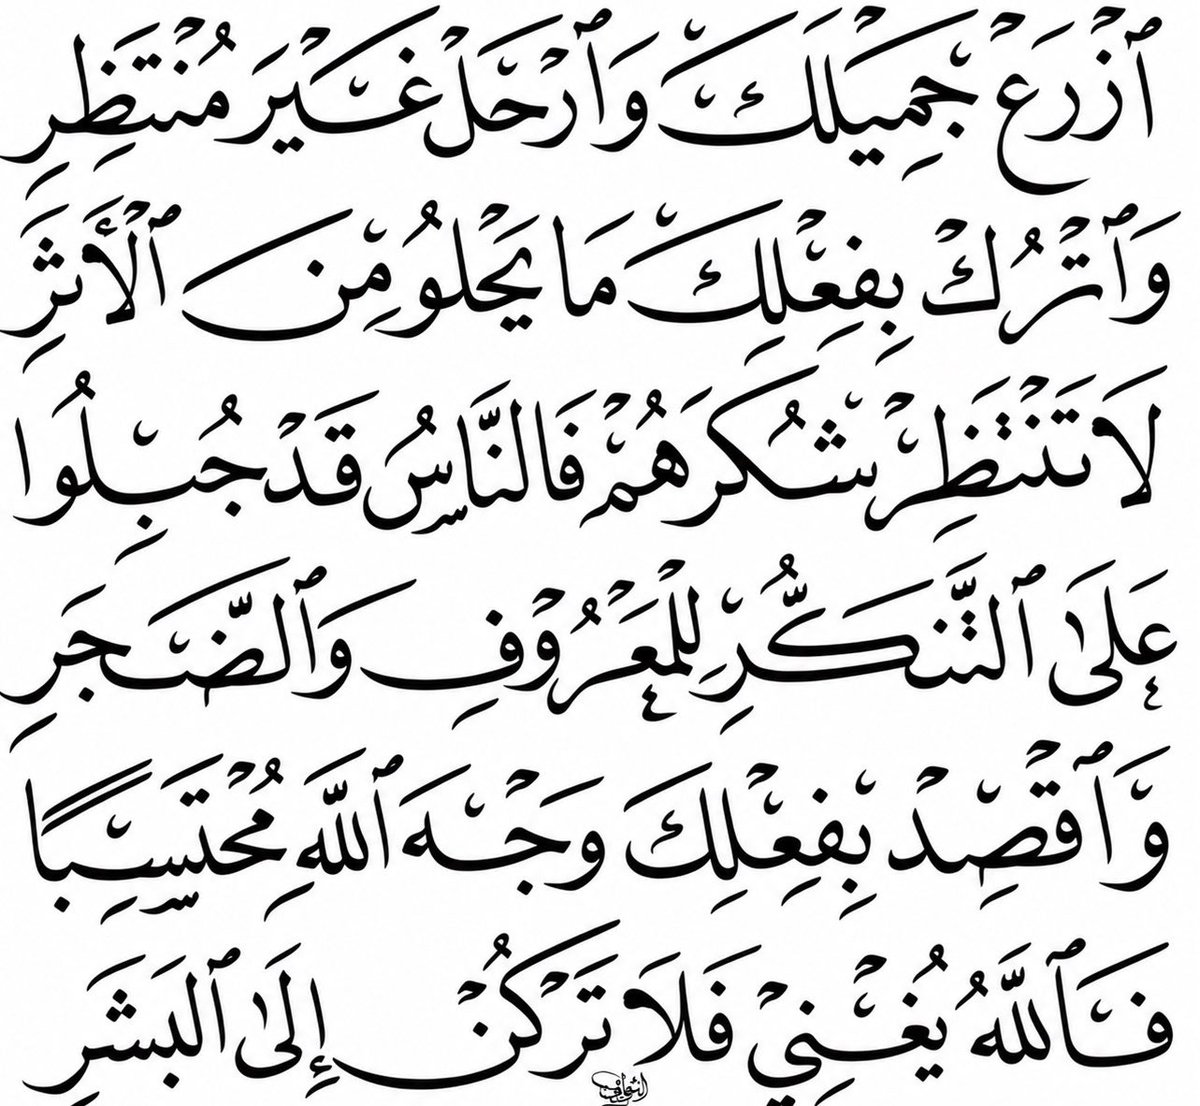 ٱزْرَعْ جَمِيْلَكَ وَٱرْحَلْ غَيْرَ مُنْتَظِرِ
وَٱتْرُكْ بِفِعْلِكَ مَا يَحْلُو مِنَ ٱلْأَثَرِ
لَا تَنْتَظِرْ شُكْرَهُمْ فَالنَّاسُ قَدْ جُبِلُوا
عَلَى ٱلتَّنَكُّرِ لِلْمَعْرُوْفِ وَٱلضَّجَرِ
وَٱقْصِدْ بِفِعْلِكَ وَجْهَ ٱللَّهِ مُحْتَسِبًا
فَٱللَّهُ يُغْنِيْ فَلَا تَرْكُنْ إِلَى ٱلبَشَرِ